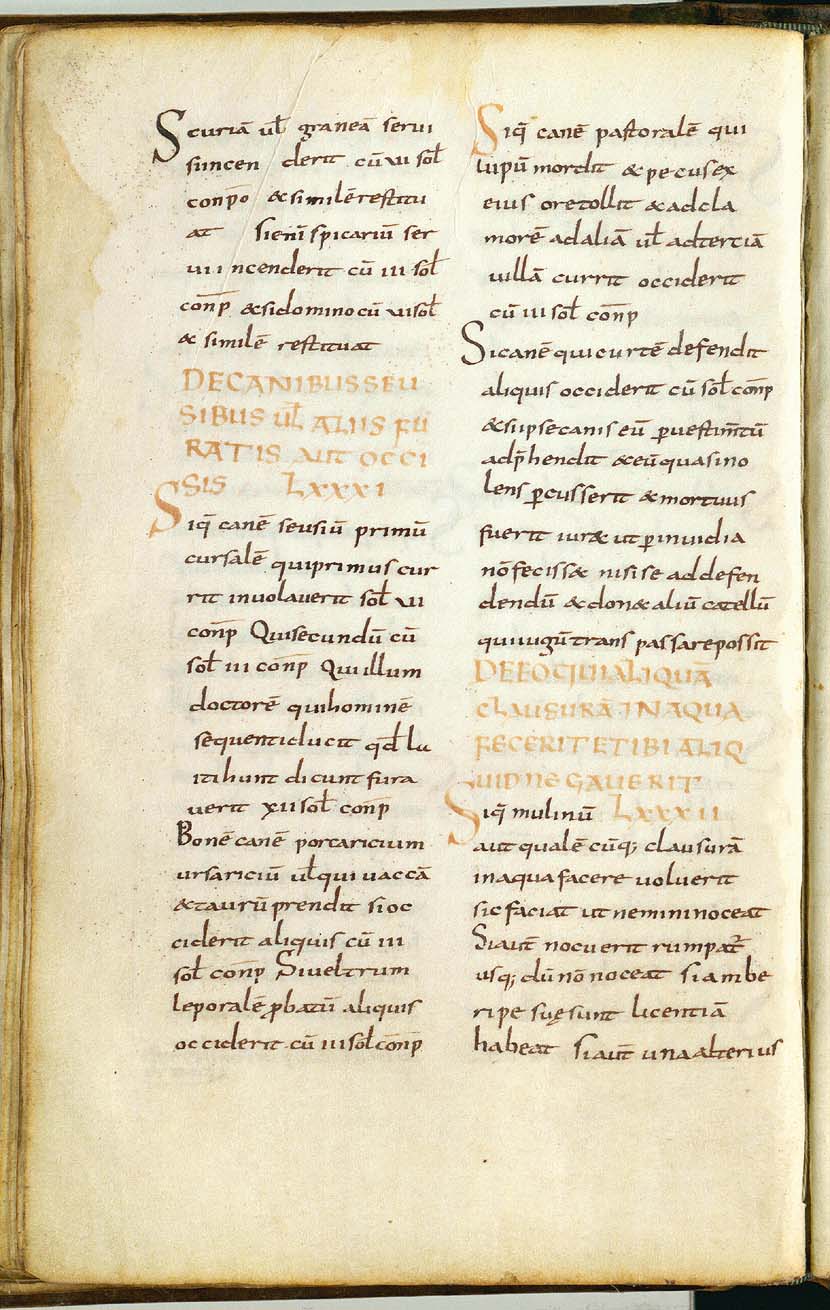 Scuriā ul̄ graneā servi
sūincen derit cū vi sol̄
conp̄o &similērestitu
at siem̄ spicariū ser
vi incenderit cū iii sol̄
con̄p &sidominocū visol̄
& similē restituat
DECANIBUSSEU
SIBUS ul̄ ALIIS FU
RATIS AUT OCCI
SIS LXXXI
Siq̄ canē seusiū primū
cursalē quiprimus cur
rit involaverit sol̄ vi
con̄p Quisecundū cū
sol̄ iii con̄p Quillum
doctorē quihominē
sequenticlucit qd̄ la
itihunt dicunt fura
verit xii sol̄ con̄p
Bonē canē porcaricium
ursariciū ul̄qui vaccā
&taurū prendit sioc
ciderit aliquis cū iii
sol̄ con̄p Siveltrum
leporalē ꝓbatū aliquis
occiderit cū iii sol̄ con̄p
Siq̄ canē pastoralē qui
lupū mordit & pecusex
eius oretollit &adcla
morē adaliā ul̄ adtertiā
villā currit occiderit
cū iii sol̄ con̄p
Sicanē quicurtē defendit
aliquis occiderit cū sol̄ con̄p
&siipsecanis eū ꝑvestim̄tū
adp̄hendit &eūquasino
lens ꝑcusserit &mortuus
fuerit iur& ut ꝑinvidia
nōfeciss& nisise addefen
dendū &don&aliū catellū
quiiugūtranspassarepossit
DEEOQUIALIQUĀ
CLAUSURĀ INAQUA
FECERITETIBIALIQ
UIDNEGAVERIT
Siq̄ mulinū LXXXII
aut qualē cūq; clausurā
inaquafacere voluerit
sic faciat ut neminnoceat
Siaut̄ nocuerit rumpat̄
usq; dū nō noceat siambe
ripe suęsunt licentiā
habeat siaut̄ unaalterius